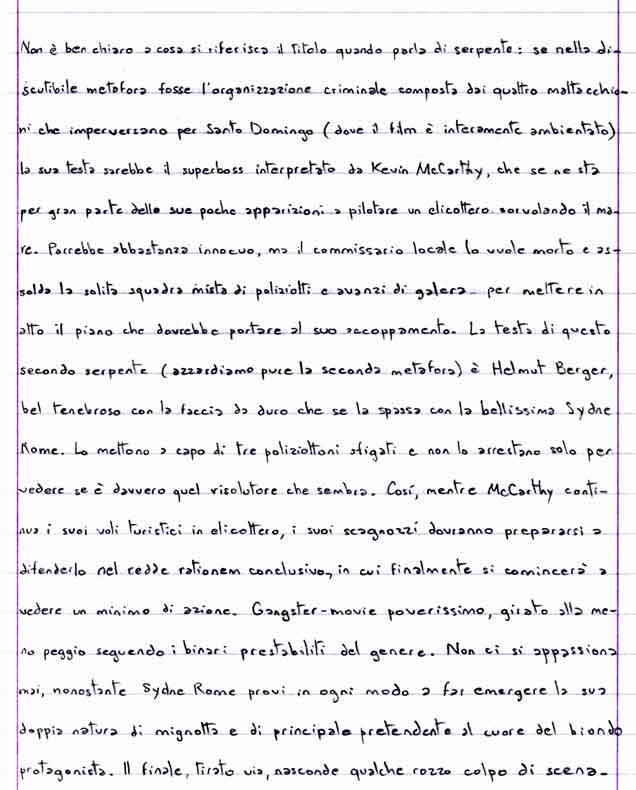 Non è ben chiaro a cosa si riferisca il titolo quando parla di serpente: se nella di-
scutibile metafora fosse l'organizzazione criminale composta dai quattro maltacchio-
ni che imperversano per Santo Domingo (dove il film è interamente ambientato)
la sua testa sarebbe il superboss interpretato da Kevin McCarthy, che se ne sta
per gran parte delle sue poche apparizioni a pilotare un elicottero sorvolando il ma-
re. Parrebbe abbastanza innocuo, ma il commissario locale lo vuole morto e as-
solda la solita squadra mista di poliziotti e avanzi di galera per mettere in
atto il piano che dovrebbe portare al suo accoppamento. La testa di questo
secondo serpente (azzardiamo pure la seconda metafora) è Helmut Berger,
bel tenebroso con la faccia da duro che se la spassa con la bellissima Sydne
Rome. Lo mettono a capo di tre poliziottoni sfigati e non lo arrestano solo per
vedere se è davvero quel risolutore che sembra. Cosí, mentre McCarthy conti-
nua i suoi voli turistici in elicottero, i suoi scagnozzi dovranno prepararsi a
difenderlo nel redde rationem conclusivo, in cui finalmente si comincerà a
vedere un minimo di azione. Gangster-movie poverissimo, girato alla me-
no peggio seguendo i binari prestabiliti del genere. Non ci si appassiona
mai, nonostante Sydne Rome provi in ogni modo a far emergere la sua
doppia natura di mignotta e di principale pretendente al cuore del biondo
protagonista. Il finale, tirato via, nasconde qualche rozzo colpo di scena.